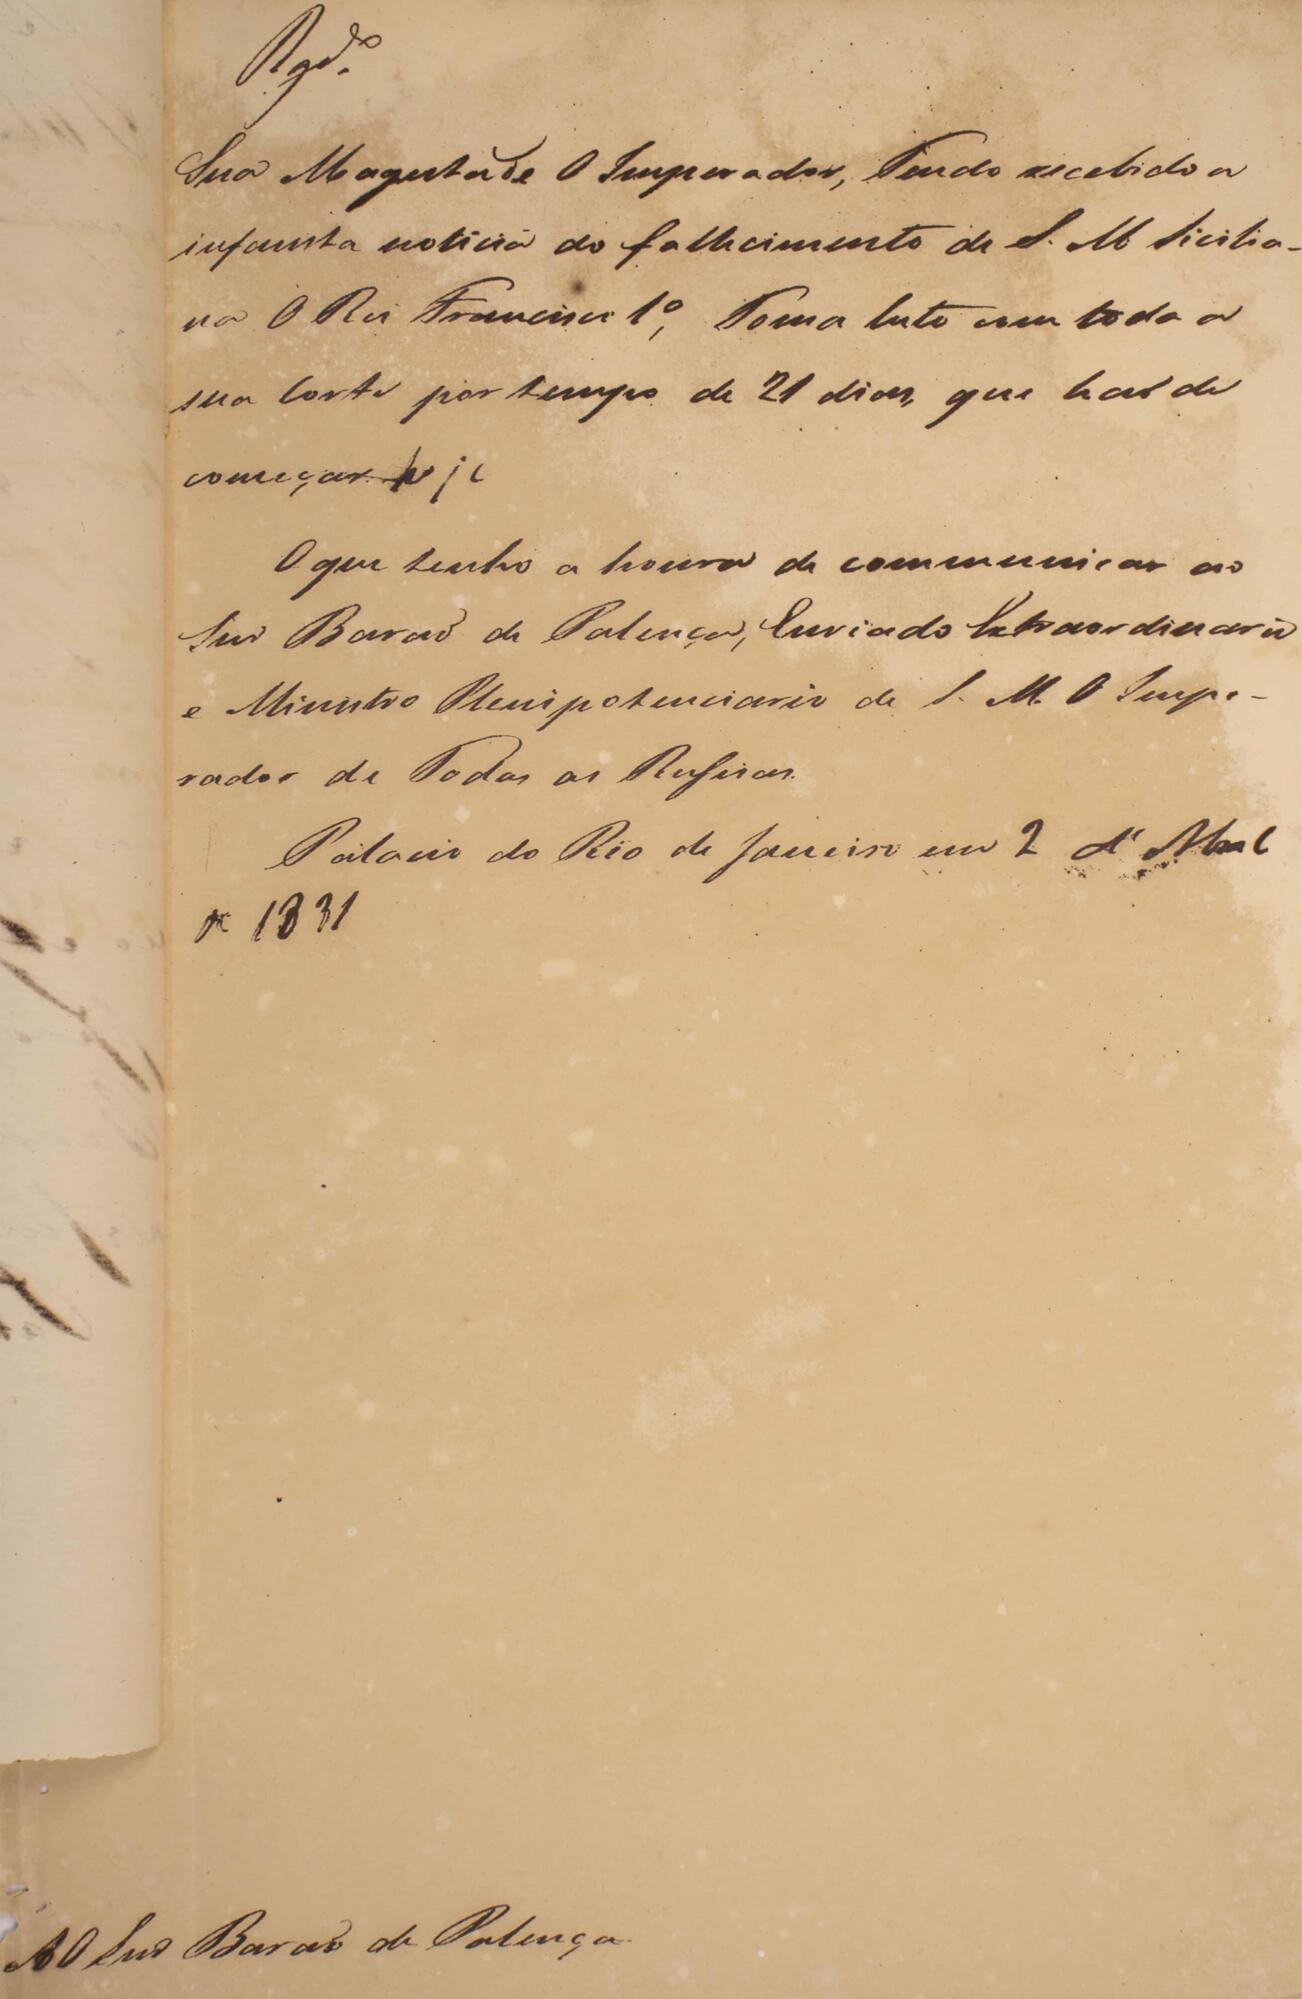 Rgdº
Sua Magestade O Imperador, Tendo recebido a
infausta noticia do fallecimento de S. M Sicilia-
na O Rei Francisco 1º, Toma luto com toda a
sua Corte por tempo de 21 dias, que haõ de
começar hoje
O que tenho a honra de communicar ao
Snr Baraõ de Palença, Enviado Extraordinario
e Ministro Plenipotenciario de S. M. O Impe-
rador de Todas as Russias.
Palacio do Rio de Janeiro em 2 d'Abril
de 1831
AO Snr Baraõ de Palença.